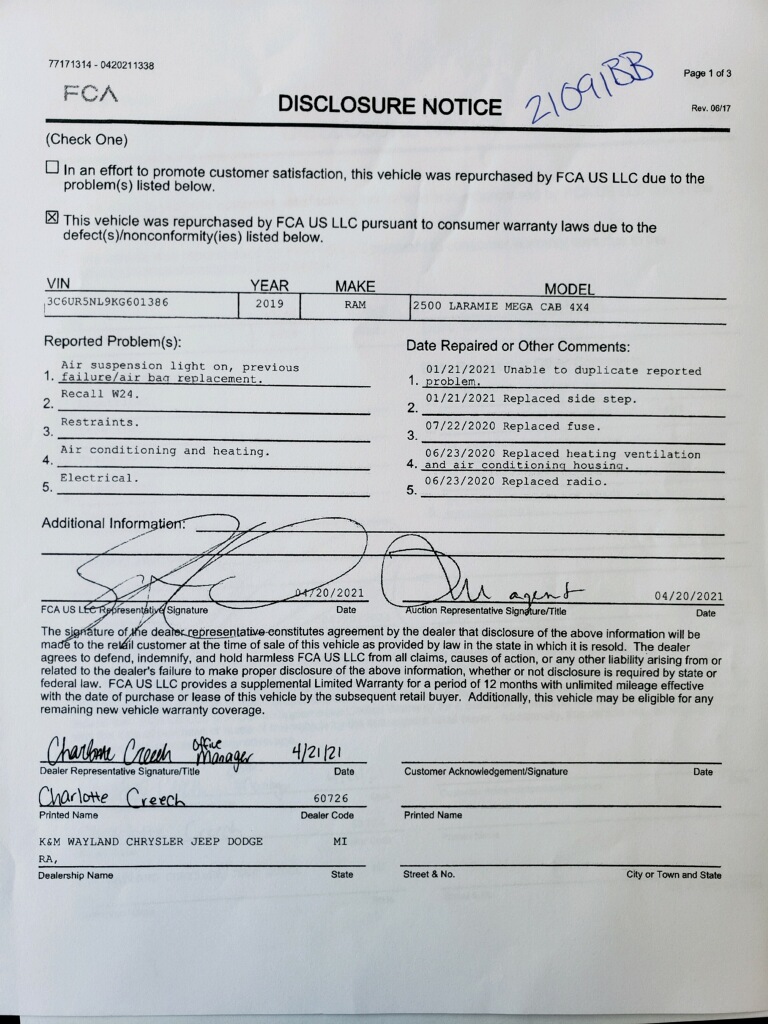 77171314 - 0420211338
Page 1 of 3
FCA
DISCLOSURE NOTICE
21091BB
Rev. 06/17
(Check One)
☐ In an effort to promote customer satisfaction, this vehicle was repurchased by FCA US LLC due to the
problem(s) listed below.
☒ This vehicle was repurchased by FCA US LLC pursuant to consumer warranty laws due to the
defect(s)/nonconformity(ies) listed below.
VIN YEAR MAKE MODEL
3C6UR5NL9KG601386 2019 RAM 2500 LARAMIE MEGA CAB 4X4
Reported Problem(s):
1. Air suspension light on, previous
failure/air bag replacement.
2. Recall W24.
3. Restraints.
4. Air conditioning and heating.
5. Electrical.
Date Repaired or Other Comments:
1. 01/21/2021 Unable to duplicate reported
problem.
2. 01/21/2021 Replaced side step.
3. 07/22/2020 Replaced fuse.
4. 06/23/2020 Replaced heating ventilation
and air conditioning housing.
5. 06/23/2020 Replaced radio.
Additional Information:
04/20/2021
FCA US LLC Representative Signature Date
agent 04/20/2021
Auction Representative Signature/Title Date
The signature of the dealer representative constitutes agreement by the dealer that disclosure of the above information will be
made to the retail customer at the time of sale of this vehicle as provided by law in the state in which it is resold. The dealer
agrees to defend, indemnify, and hold harmless FCA US LLC from all claims, causes of action, or any other liability arising from or
related to the dealer's failure to make proper disclosure of the above information, whether or not disclosure is required by state or
federal law. FCA US LLC provides a supplemental Limited Warranty for a period of 12 months with unlimited mileage effective
with the date of purchase or lease of this vehicle by the subsequent retail buyer. Additionally, this vehicle may be eligible for any
remaining new vehicle warranty coverage.
Charlotte Creech Office Manager 4/21/21
Dealer Representative Signature/Title Date
Customer Acknowledgement/Signature Date
Charlotte Creech 60726
Printed Name Dealer Code
Printed Name
K&M WAYLAND CHRYSLER JEEP DODGE MI
RA,
Dealership Name State
Street & No. City or Town and State